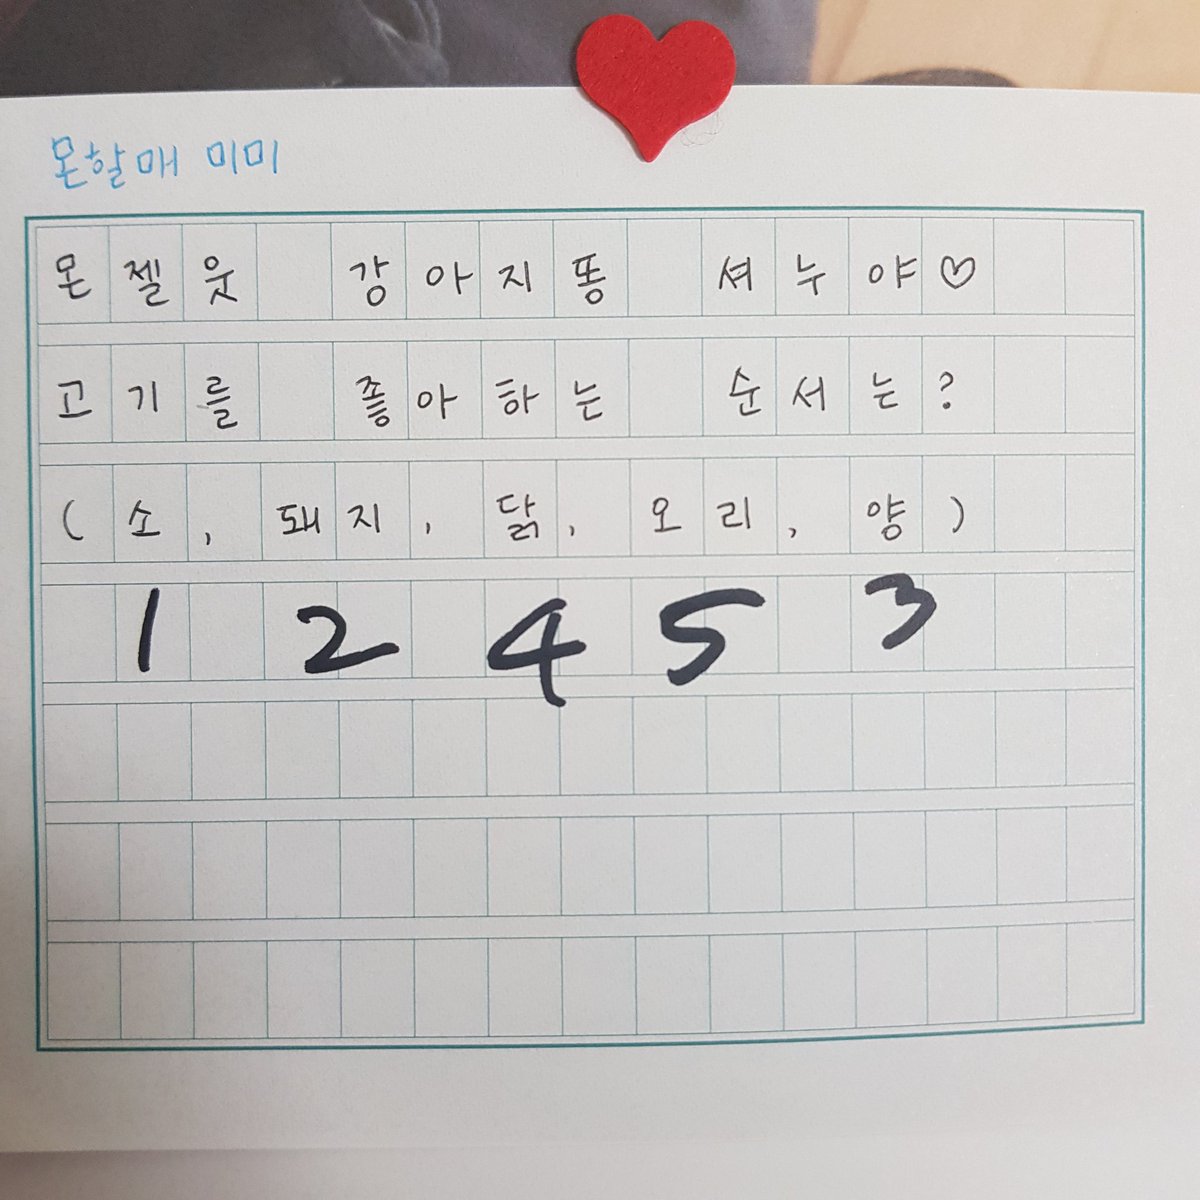 몬할매 미미
몬젤웃 강아지똥 셔누야♡
고기를 좋아하는 순서는?
(소, 돼지, 닭, 오리, 양)
1 2 4 5 3